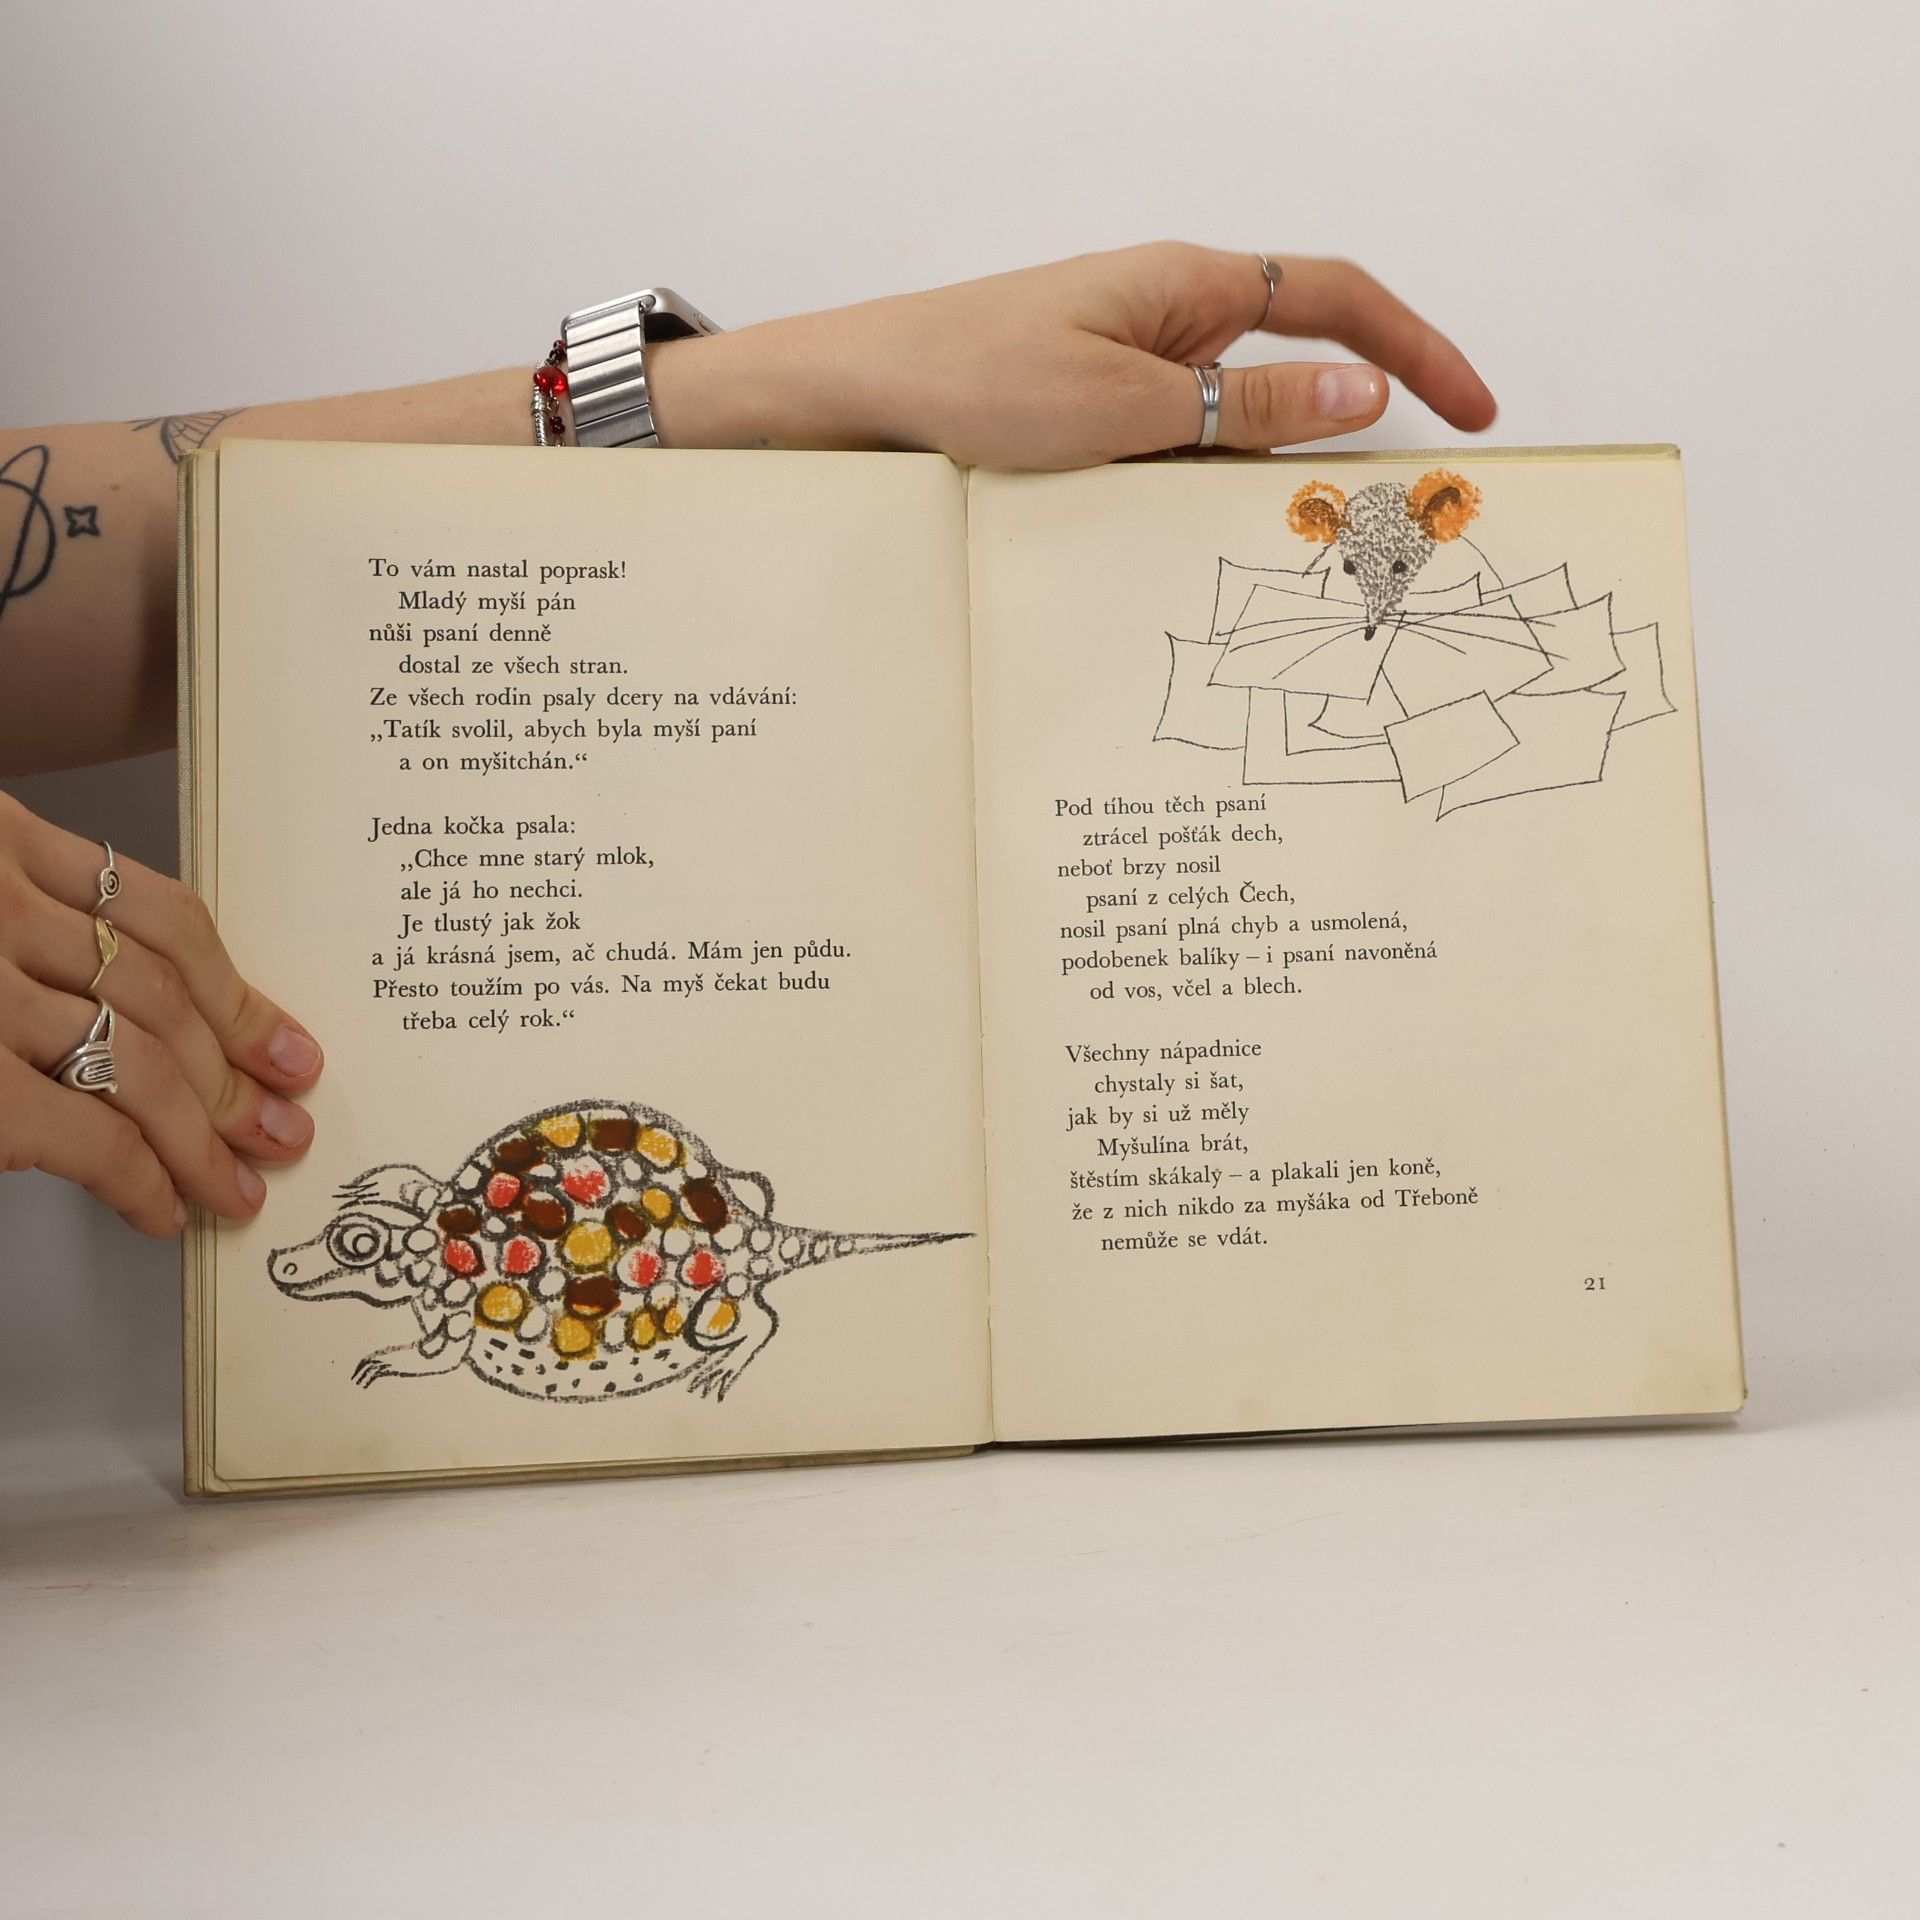 To vám nastal poprask!
Mladý myší pán
nůši psaní denně
dostal ze všech stran.
Ze všech rodin psaly dcery na vdávání:
„Tatík svolil, abych byla myší paní
a on myšitchán.“
Jedna kočka psala:
„Chce mne starý mlok,
ale já ho nechci.
Je tlustý jak žok
a já krásná jsem, ač chudá. Mám jen půdu.
Přesto toužím po vás. Na myš čekat budu
třeba celý rok.“
Pod tíhou těch psaní
ztrácel pošťák dech,
neboť brzy nosil
psaní z celých Čech,
nosil psaní plná chyb a usmolená,
podobenek balíky – i psaní navoněná
od vos, včel a blech.
Všechny nápadnice
chystaly si šat,
jak by si už měly
Myšulína brát,
štěstím skákaly – a plakali jen koně,
že z nich nikdo za myšáka od Třeboně
nemůže se vdát.
21